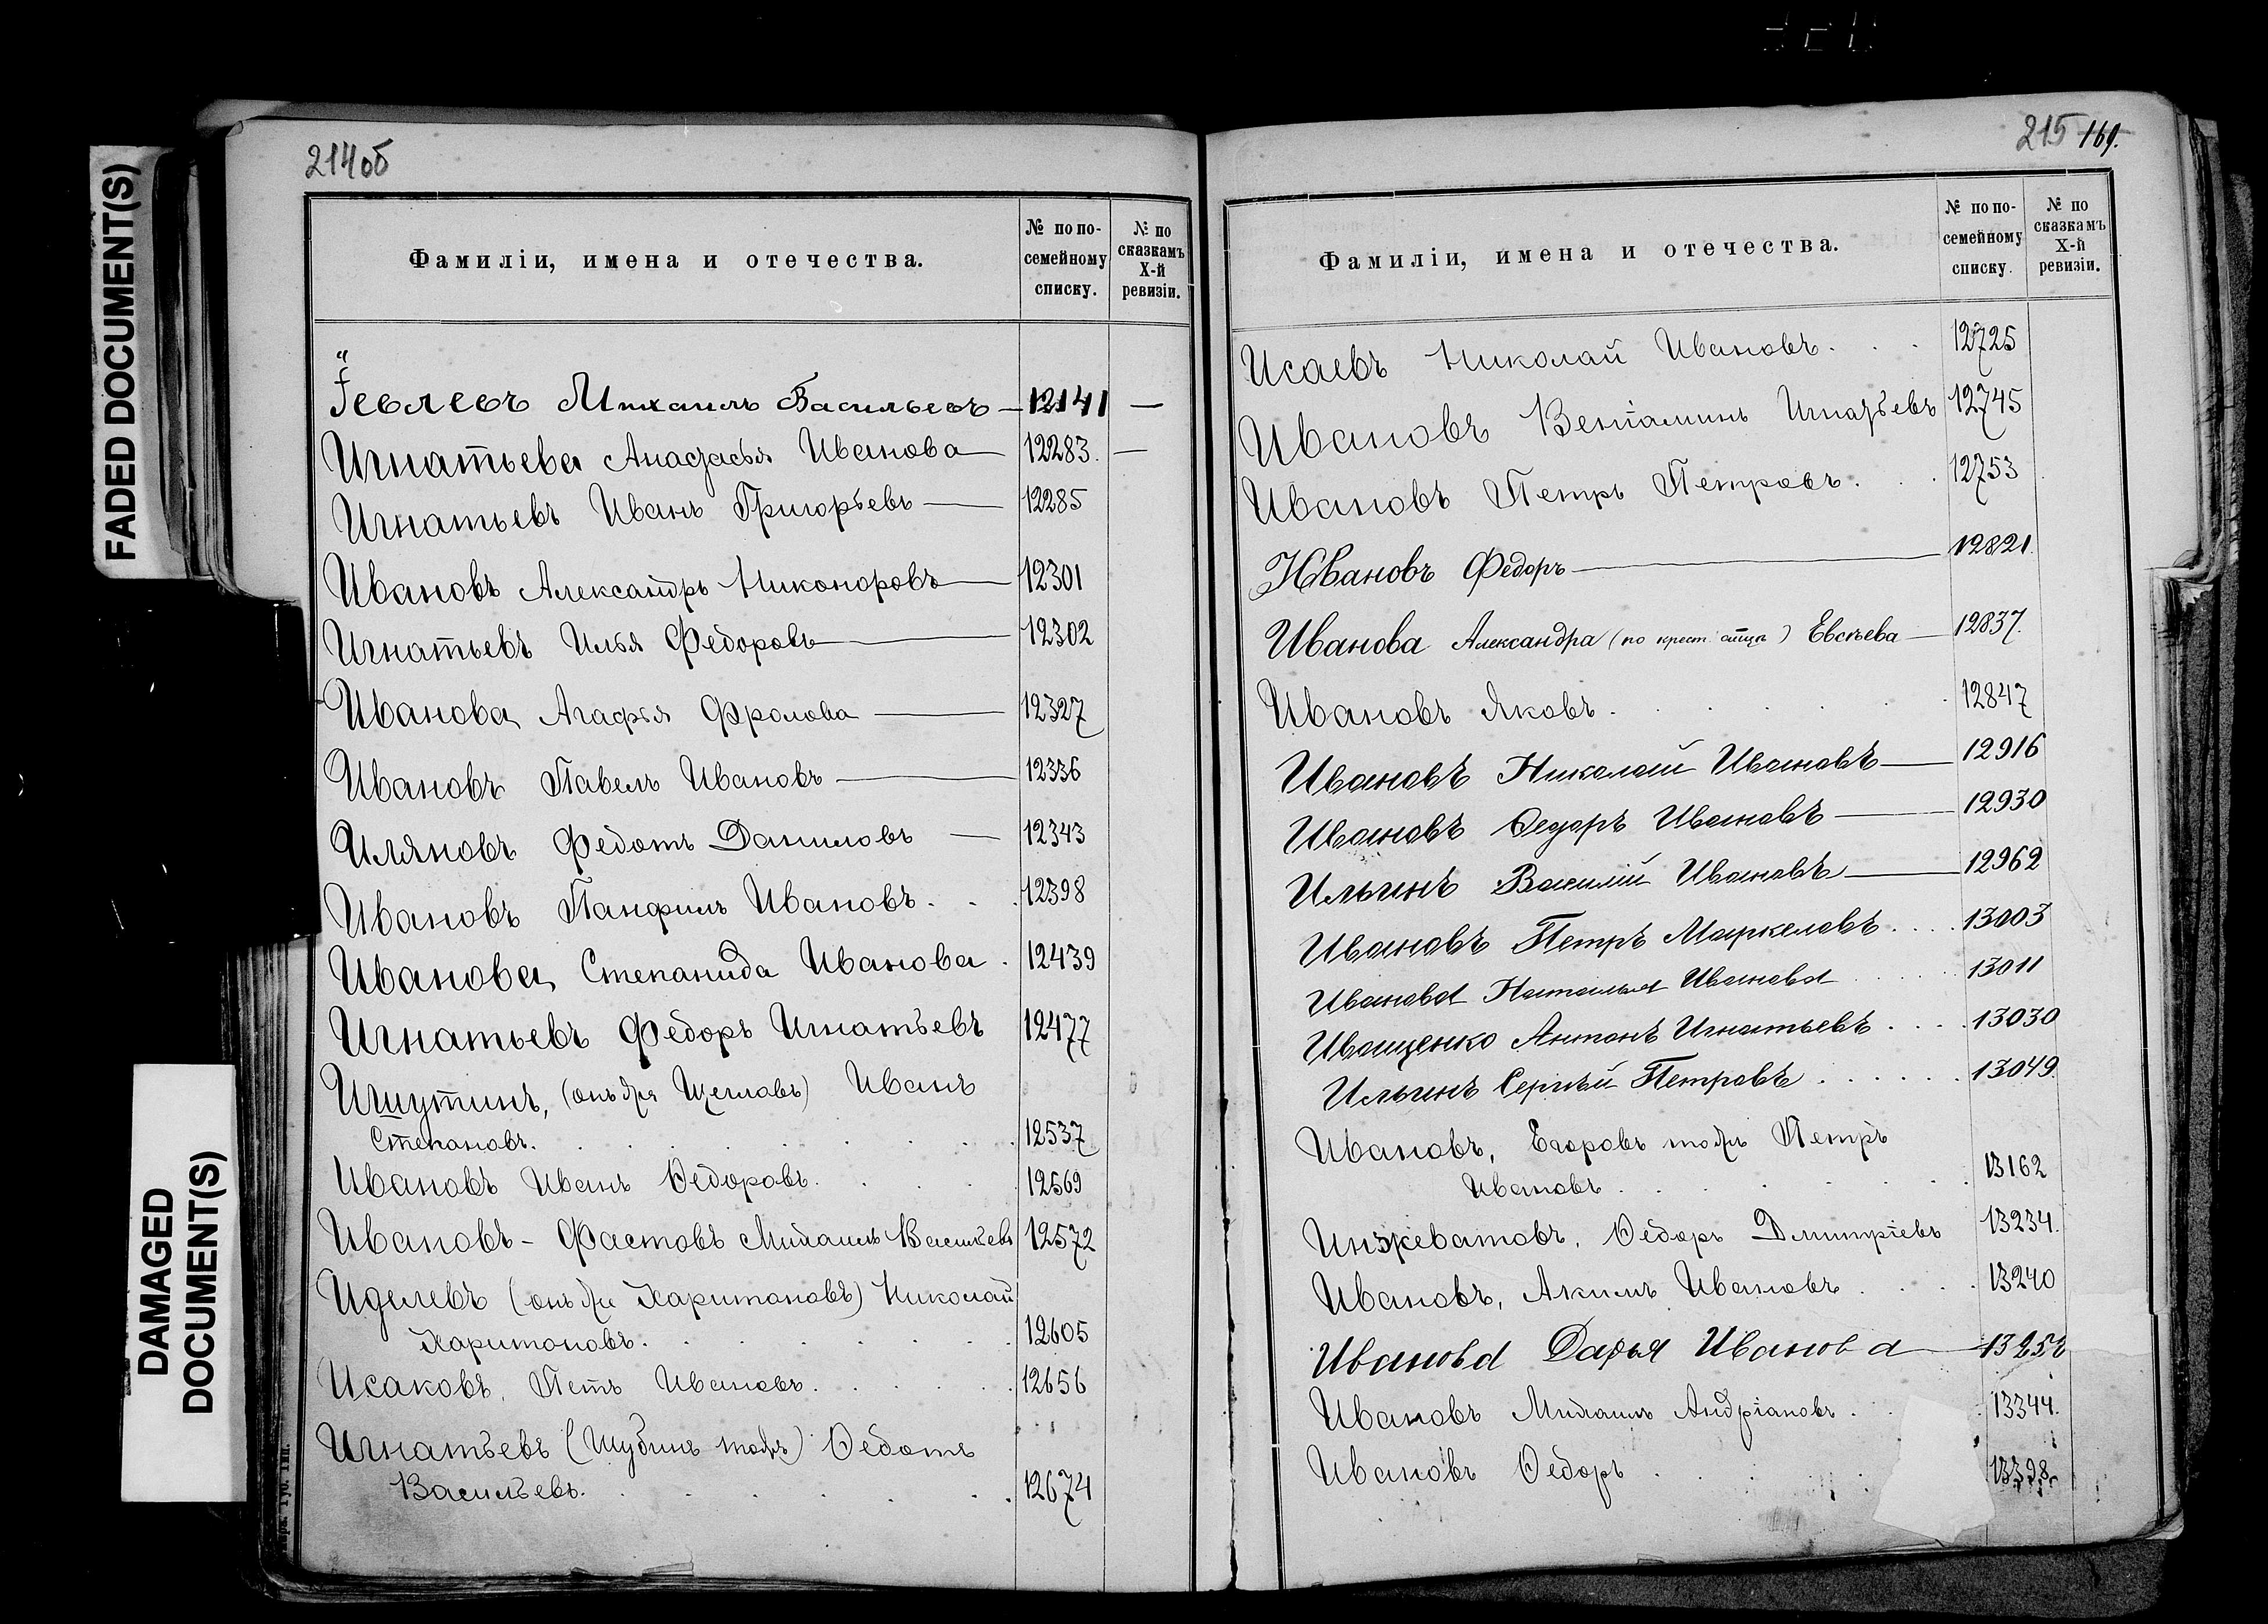 FADED DOCUMENT(S)
DAMAGED
DOCUMENT(S)
214об
Фамиліи, имена и отечества.
№ по по-
семейному
списку.
№ по
сказкамъ
X-й
ревизіи.
"
Іевлевъ Михаилъ Васильевъ — 12141 —
Игнатьева Анастасья Иванова — 12283. —
Игнатьевъ Иванъ Григорьевъ — 12285
Ивановъ Александръ Никоноровъ — 12301
Игнатьевъ Илья Федоровъ — 12302
Иванова Агафья Фролова — 12327
Ивановъ Павелъ Ивановъ — 12336
Иляновъ Федотъ Даниловъ — 12343
Ивановъ Панфилъ Ивановъ. . . 12398
Иванова Степанида Иванова . 12439
Игнатьевъ Федоръ Игнатьевъ 12477
(онъ же Щегловъ) Иванъ
Степановъ. 12537
Ивановъ Иванъ Ѳедоровъ. 12569
Ивановъ - Фастовъ Михаилъ Васильевъ 12572
(онъ же Харитоновъ) Николай
Харитоновъ. 12605
Исаковъ, Петъ Ивановъ. 12656
Игнатьевъ (Шубинъ тожъ) Ѳедотъ
Васильевъ. 12674
215 169.
Фамиліи, имена и отечества.
№ по по-
семейному
списку.
№ по
сказкамъ
X-й
ревизіи.
Исаевъ Николай Ивановъ. . . 12725
Ивановъ Веніаминъ Игнатьевъ 12745
Ивановъ Петръ Петровъ. . . 12753
Ивановъ Федоръ — 12821.
Иванова Александра (по крест. отцу) Евсѣева — 12837.
Ивановъ Яковъ. 12847
Ивановъ Николай Ивановъ — 12916
Ивановъ Ѳедоръ Ивановъ — 12930
Ильинъ Василій Ивановъ — 12962
Ивановъ Петръ Маркеловъ. . . . 13003
Иванова Наталья Иванова 13011
Иващенко Антонъ Игнатьевъ . . . . 13030
Ильинъ Сергѣй Петровъ . . . . . . 13049.
Ивановъ, Егоровъ тожъ Петръ
Ивановъ. 13162
Инжеватовъ, Ѳедоръ Дмитріевъ 13234.
Ивановъ, Акимъ Ивановъ . . . . 13240
Иванова Дарья Иванова — 13252
Ивановъ Михаилъ Андріановъ . . 13344.
Ивановъ Ѳедоръ 13398.